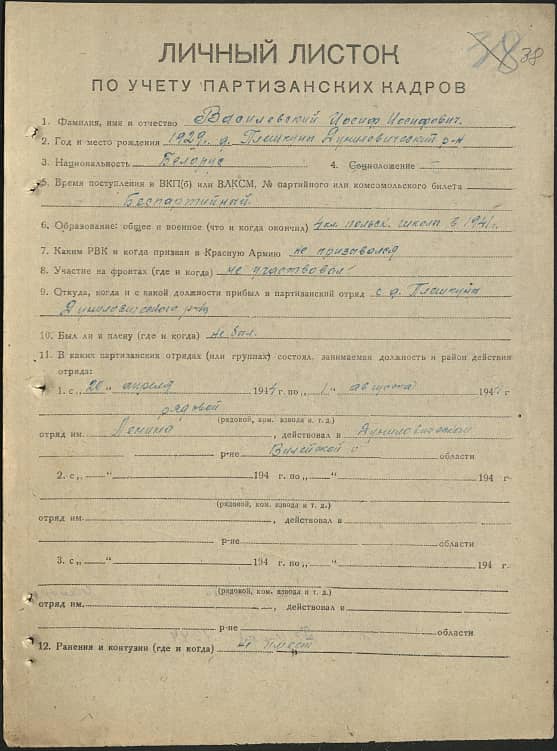 38 38
ЛИЧНЫЙ ЛИСТОК
ПО УЧЕТУ ПАРТИЗАНСКИХ КАДРОВ
1. Фамилия, имя и отчество Василевский Иосиф Иосифович.
2. Год и место рождения 1929 д. Плашкуны Дуниловический р-н
3. Национальность Белорус 4. Соцположение
5. Время поступления в ВКП(б) или ВЛКСМ, № партийного или комсомольского билета
Беспартийный
6. Образование: общее и военное (что и когда окончил) 4 кл. польск. школа в 1941 г.
7. Каким РВК и когда призван в Красную Армию не призывался
8. Участие на фронтах (где и когда) не участвовал
9. Откуда, когда и с какой должности прибыл в партизанский отряд с д.
Дуниловичского р-на
10. Был ли в плену (где и когда) не был.
11. В каких партизанских отрядах (или группах) состоял, занимаемая должность и район действия
отряда:
1. с „20“ апреля 1944 г. по „1“ августа 194 г
рядовой
(рядовой, ком. взвода и т. д.)
отряд им. Ленина, действовал в Дуниловичском
р-не Вилейской области
2. с „ “ 194 г. по „ “ 194 г
(рядовой, ком. взвода и т. д.)
отряд им. , действовал в
р-не области
3. с „ “ 194 г. по „ “ 194 г
(рядовой, ком. взвода и т. д.)
отряд им. , действовал в
р-не области
12. Ранения и контузии (где и когда) не имеет